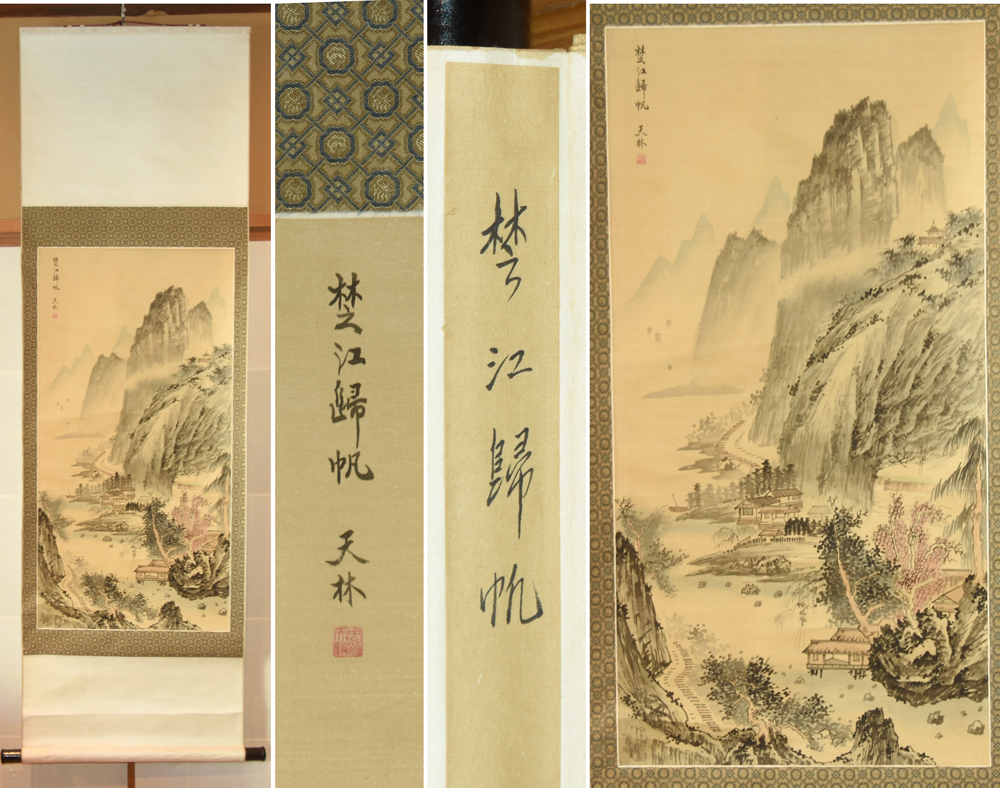 楚江歸帆 天林
楚江歸帆 天林
楚江歸帆
楚江歸帆 天林